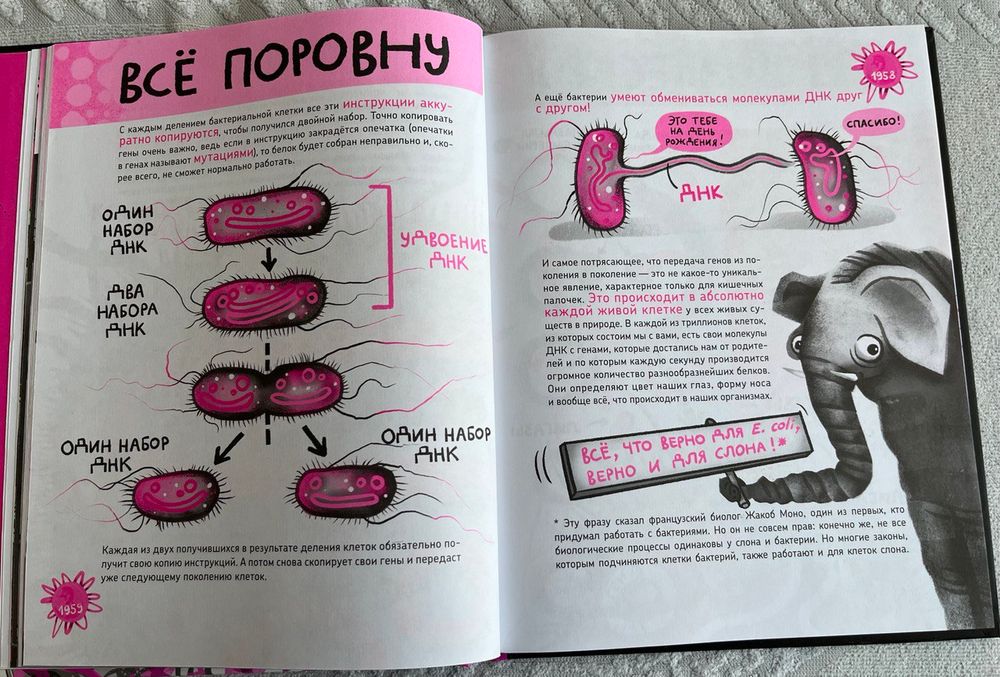 ВСЁ ПОРОВНУ
С каждым делением бактериальной клетки все эти инструкции акку-
ратно копируются, чтобы получился двойной набор. Точно копировать
гены очень важно, ведь если в инструкцию закрадётся опечатка (опечатки
в генах называют мутациями), то белок будет собран неправильно и, ско-
рее всего, не сможет нормально работать.
ОДИН
НАБОР
ДНК
УДВОЕНИЕ
ДНК
ДВА
НАБОРА
ДНК
ОДИН НАБОР
ДНК
ОДИН НАБОР
ДНК
Каждая из двух получившихся в результате деления клеток обязательно по-
лучит свою копию инструкций. А потом снова скопирует свои гены и передаст
уже следующему поколению клеток.
1959
1958
А ещё бактерии умеют обмениваться молекулами ДНК друг
с другом!
ЭТО ТЕБЕ
НА ДЕНЬ
РОЖДЕНИЯ!
СПАСИБО!
ДНК
И самое потрясающее, что передача генов из по-
коления в поколение — это не какое-то уникаль-
ное явление, характерное только для кишечных
палочек. Это происходит в абсолютно
каждой живой клетке у всех живых су-
ществ в природе. В каждой из триллионов клеток,
из которых состоим мы с вами, есть свои молекулы
ДНК с генами, которые достались нам от родите-
лей и по которым каждую секунду производится
огромное количество разнообразнейших белков.
Они определяют цвет наших глаз, форму носа
и вообще всё, что происходит в наших организмах.
ВСЁ, ЧТО ВЕРНО ДЛЯ E. coli,
ВЕРНО И ДЛЯ СЛОНА!*
* Эту фразу сказал французский биолог Жакоб Моно, один из первых, кто
придумал работать с бактериями. Но он не совсем прав: конечно же, не все
биологические процессы одинаковы у слона и бактерии. Но многие законы,
которым подчиняются клетки бактерий, также работают и для клеток слона.